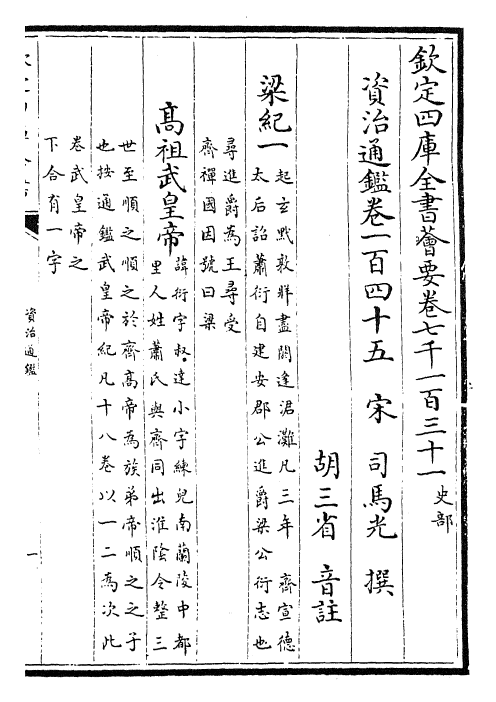 欽定四庫全書薈要卷七千一百三十一 史部
資治通鑑卷一百四十五 宋 司馬光 撰
胡三省 音註
梁紀一 起玄黓敦牂盡閼逢涒灘凡三年 齊宣德
太后詔蕭衍自建安郡公進爵梁公衍志也
尋進爵為王尋受
齊禪國因號曰梁
高祖武皇帝 諱衍字叔達小字練兒南蘭陵中都
里人姓蕭氏與齊同出淮陰令整三
世至順之順之於齊高帝為族弟帝順之之子
也按通鑑武皇帝紀凡十八卷以一二為次此
卷武皇帝之
下合有一字
資治通鑑
一